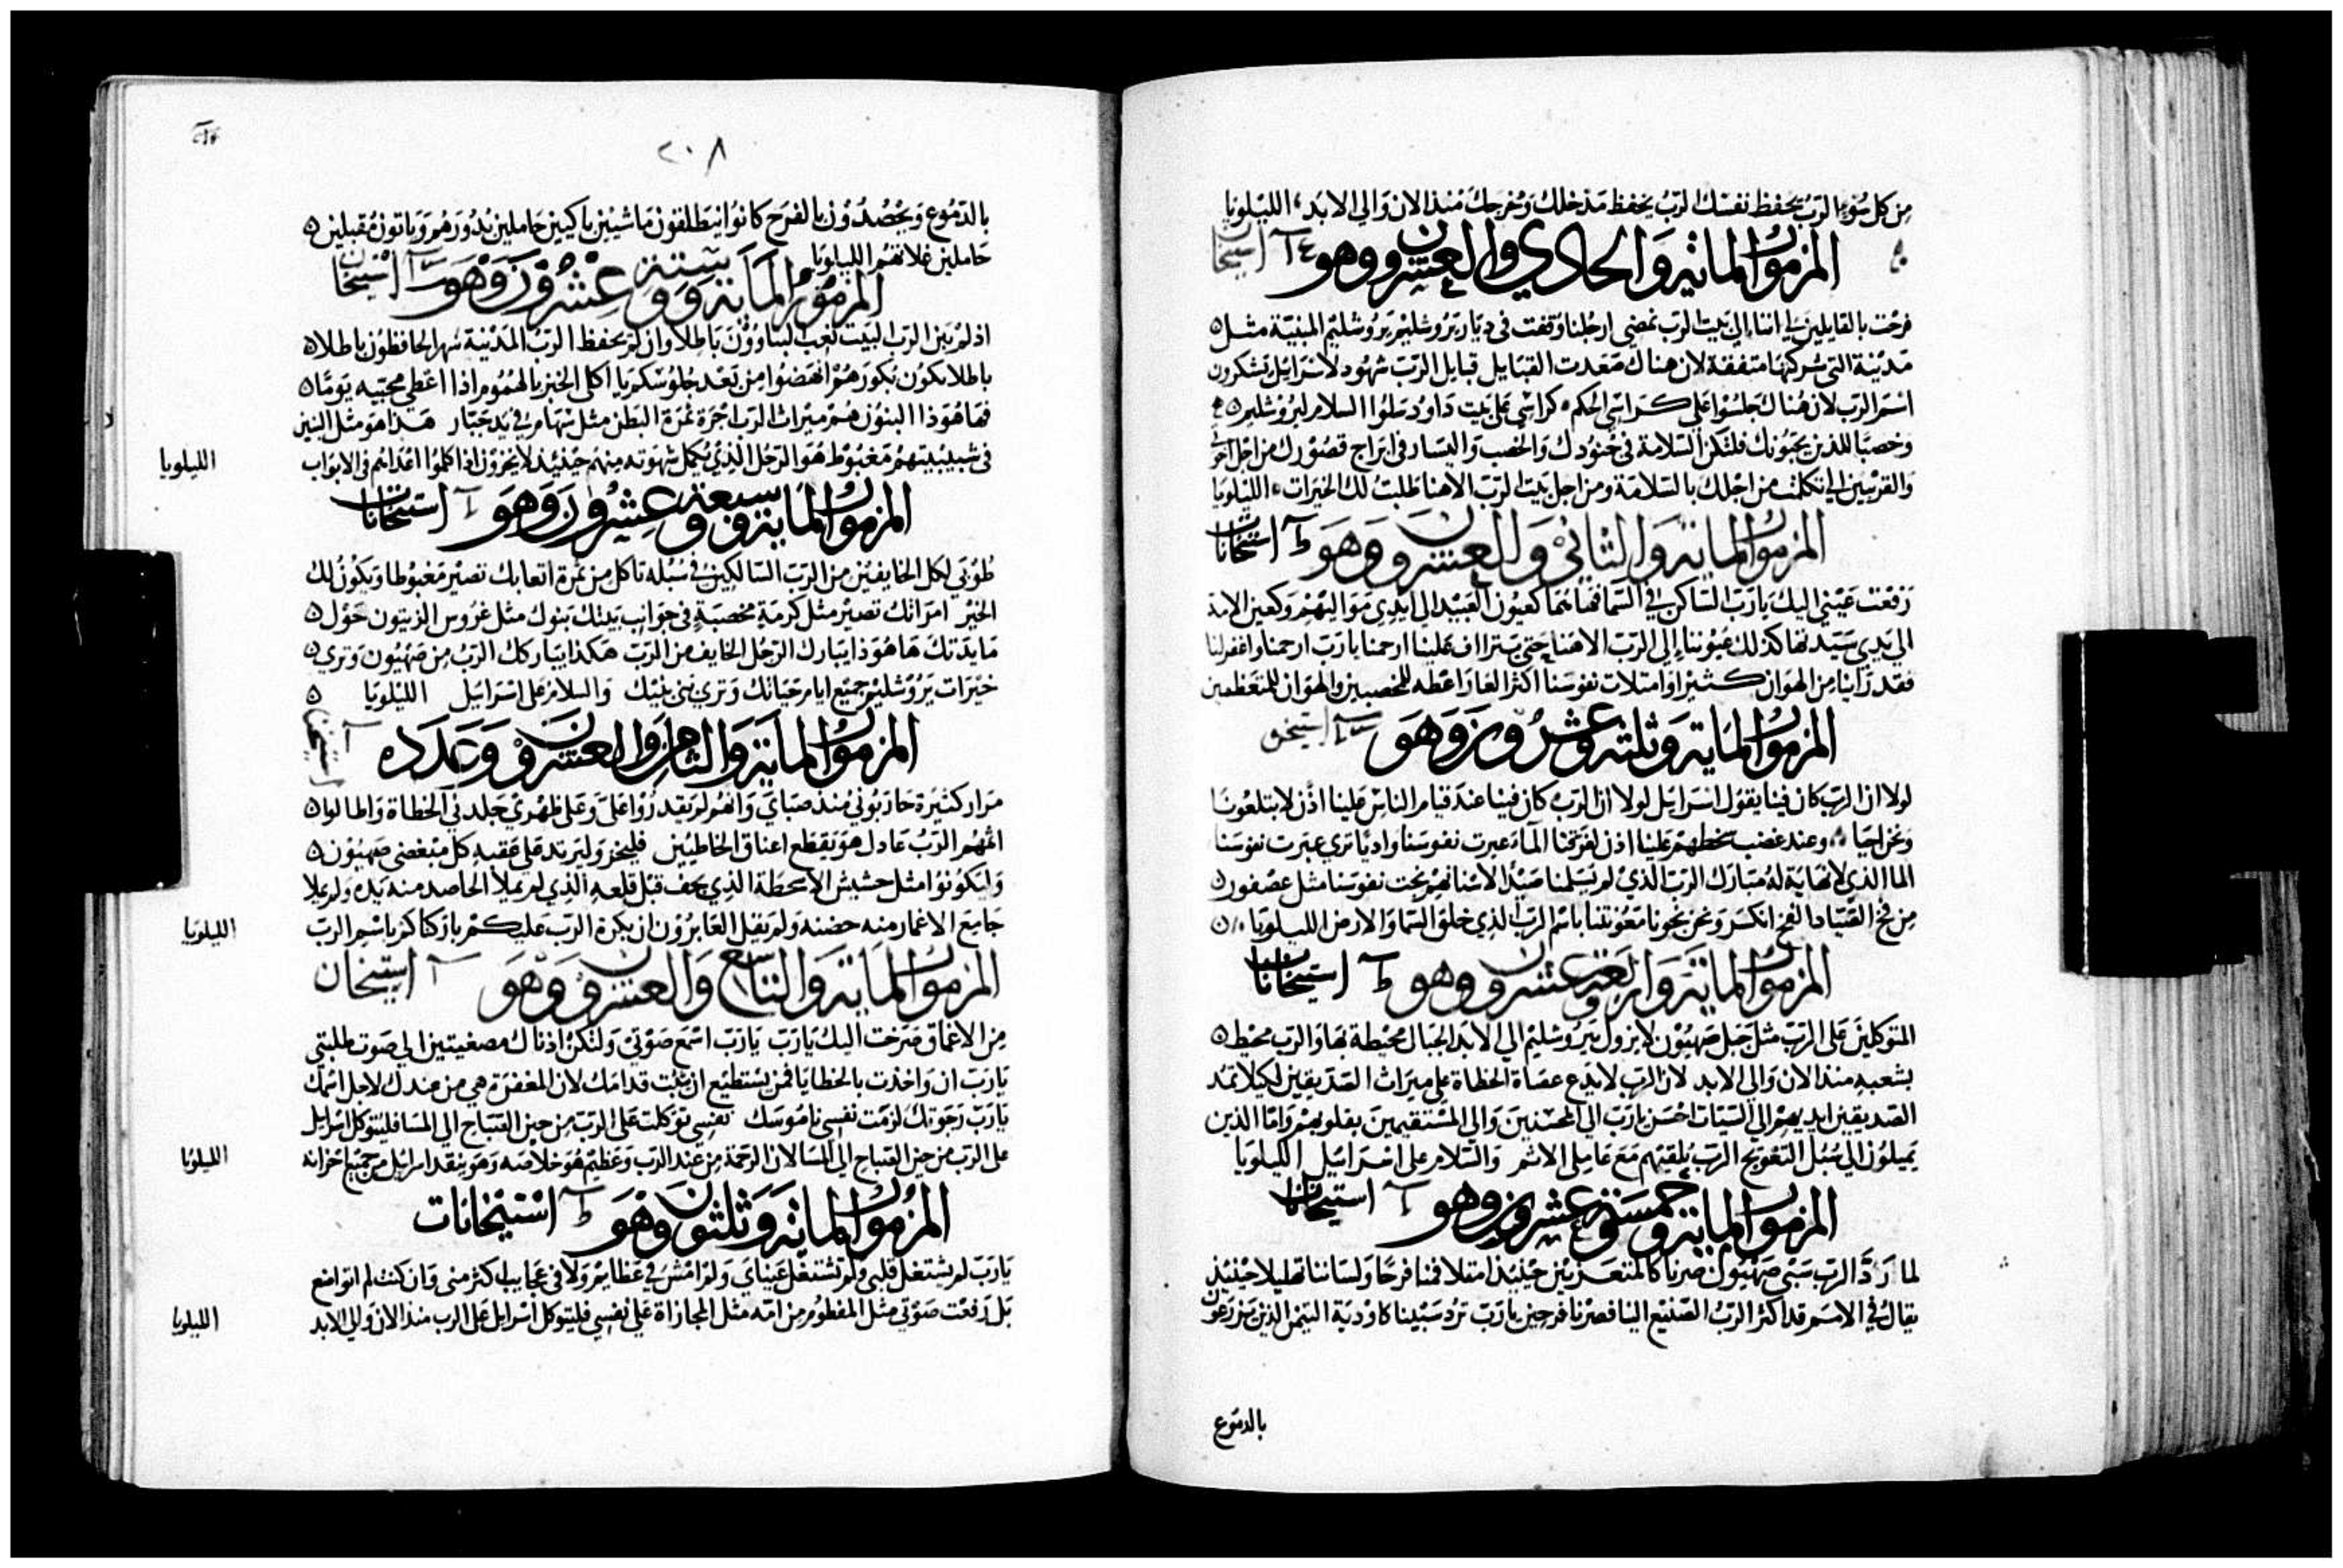 من كل سوء الرب يحفظ نفسك الرب يحفظ مدخلك ومخرجك منذ الان والي الابد الليلويا
المزمور الماية والحادي والعشرون وهو استيخان
فرحت بالقايلين لي اننا الي بيت الرب نمضي ارجلنا وقفت في ديار يروشليم يروشليم المبنية مثل
مدينة التي شركتها متفقة لان هناك صعدت القبايل قبايل الرب شهود لاسراييل يشكرون
اسم الرب لان هناك جلسوا علي كراسي الحكم كراسي علي بيت داود سلوا السلام ليروشليم
وخصبا للذين يحبونك فلتكن السلامة في جنودك والخصب واليسار في ابراج قصورك من اجل اخوتي
والقريبين الي تكلمت من اجلك بالسلامة ومن اجل بيت الرب الاهنا طلبت لك الخيرات الليلويا
المزمور الماية والثاني والعشرون وهو ط استيخانات
رفعت عيني اليك يارب الساكن في السما فها هما كعيون العبيد الي ايدي مواليهم وكعين الامة
الي يدي سيدتها كذلك عيوننا الي الرب الاهنا حتي يتراف علينا ارحمنا يارب ارحمنا واغفر لنا
فقد راينا من الهوان كثيرا وامتلات نفوسنا اكثر العار اعطه للمخصبين والهوان للمتعظمين
المزمور الماية وثلثة وعشرون وهو استيخن
لولا ان الرب كان فينا يقول اسراييل لولا ان الرب كان فينا عند قيام الناس علينا اذن لابتلعونا
ونحن احيا وعند غضب سخطهم علينا اذن لغرقنا الماء عبرت نفوسنا واديا تري عبرت نفوسنا
الما الذي لا نهاية له مبارك الرب الذي لم يسلمنا صيدا لاسنانهم نجت نفوسنا مثل عصفور
من فخ الصياد الفخ انكسر ونحن نجونا معونتنا باسم الرب الذي خلق السما والارض الليلويا
المزمور الماية واربعة وعشرون وهو ط استيخانات
المتوكلين علي الرب مثل جبل صهيون لا يزول يروشليم الي الابد الجبال محيطة بها والرب محيط
بشعبه منذ الان والي الابد لان الرب لا يدع عصاة الخطاة علي ميراث الصديقين لكيلا تمد
الصديقين ايديهم الي السيات احسن يارب الي المحسنين والي المستقيمين بقلوبهم واما الذين
يميلون الي سبل التعويج الرب يلقيهم مع عاملي الاثم والسلام علي اسراييل الليلويا
المزمور الماية وخمسة وعشرون وهو استيخانات
لما رد الرب سبي صهيون صرنا كالمتعزيين حينيذ امتلا فمنا فرحا ولساننا تهليلا حينيذ
يقال في الامم قد اكثر الرب الصنيع الينا فصرنا فرحين يارب ترد سبينا كاودية اليمن الذين يزرعون
بالدموع
٢٠٨
بالدموع ويحصدون بالفرح كانوا ينطلقون ماشيين باكيين حاملين بدورهم وياتون مقبلين
حاملين غلاتهم الليلويا
المزمور الماية وستة وعشرون وهو استيخان
اذ لم يبن الرب البيت تعب البناوون باطلا وان لم يحفظ الرب المدينة سهر الحافظون باطلا
باطلا يكون بكورهم انهضوا من بعد جلوسكم يا اكلي الخبز بالهموم اذا اعطي محبيه نوما
فها هوذا البنون هم ميراث الرب اجرة ثمرة البطن مثل سهام في يد جبار هذا هو مثل البنين
في شبيبيتهم مغبوط هو الرجل الذي يكمل شهوته منهم حينيذ لا يخزون اذا كلموا اعداهم في الابواب
الليلويا
المزمور الماية وسبعة وعشرون وهو استيخانات
طوبي لكل الخايفين من الرب السالكين في سبله تاكل من ثمرة اتعابك تصير مغبوطا ويكون لك
الخير امراتك تصير مثل كرمة مخصبة في جوانب بيتك بنوك مثل غروس الزيتون حول
مايدتك ها هوذا يبارك الرجل الخايف من الرب هكذا يباركك الرب من صهيون وتري
خيرات يروشليم جميع ايام حياتك وتري بني بنيك والسلام علي اسراييل الليلويا
المزمور الماية والثامن والعشرون وعدده استيخن
مرار كثيرة حاربوني منذ صباي وانهم لم يقدروا علي وعلي ظهري جلدني الخطاة واطالوا
اثمهم الرب عادل هو يقطع اعناق الخاطيين فليخز وليرتد علي عقبه كل مبغضي صهيون
وليكونوا مثل حشيش الاسطحة الذي يجف قبل قلعه الذي لم يملا الحاصد منه يده ولم يملا
جامع الاغمار منه حضنه ولم يقل العابرون ان بركة الرب عليكم باركناكم باسم الرب
الليلويا
المزمور الماية والتاسع والعشرون وهو استيخان
من الاعماق صرخت اليك يارب يارب اسمع صوتي ولتكن اذناك مصغيتين الي صوت طلبتي
يارب ان واخذت بالخطايا فمن يستطيع ان يثبت قدامك لان المغفرة هي من عندك لاجل اسمك
يارب رجوتك لزمت نفسي ناموسك نفسي توكلت علي الرب من حين الصباح الي المسا فليتوكل اسراييل
علي الرب من حين الصباح الي المسا لان الرحمة من عند الرب وعظيم هو خلاصه وهو ينقد اسراييل من جميع احزانه
الليلويا
المزمور الماية وثلثون وهو ط استيخانات
يارب لم يشتغل قلبي ولم تشتغل عيناي ولم امش في عظايم ولا في عجايب اكثر مني وان كنت لم اتواضع
بل رفعت صوتي مثل المفطوم من امه مثل المجازاة علي نفسي فليتوكل اسراييل علي الرب منذ الان والي الابد
الليلويا